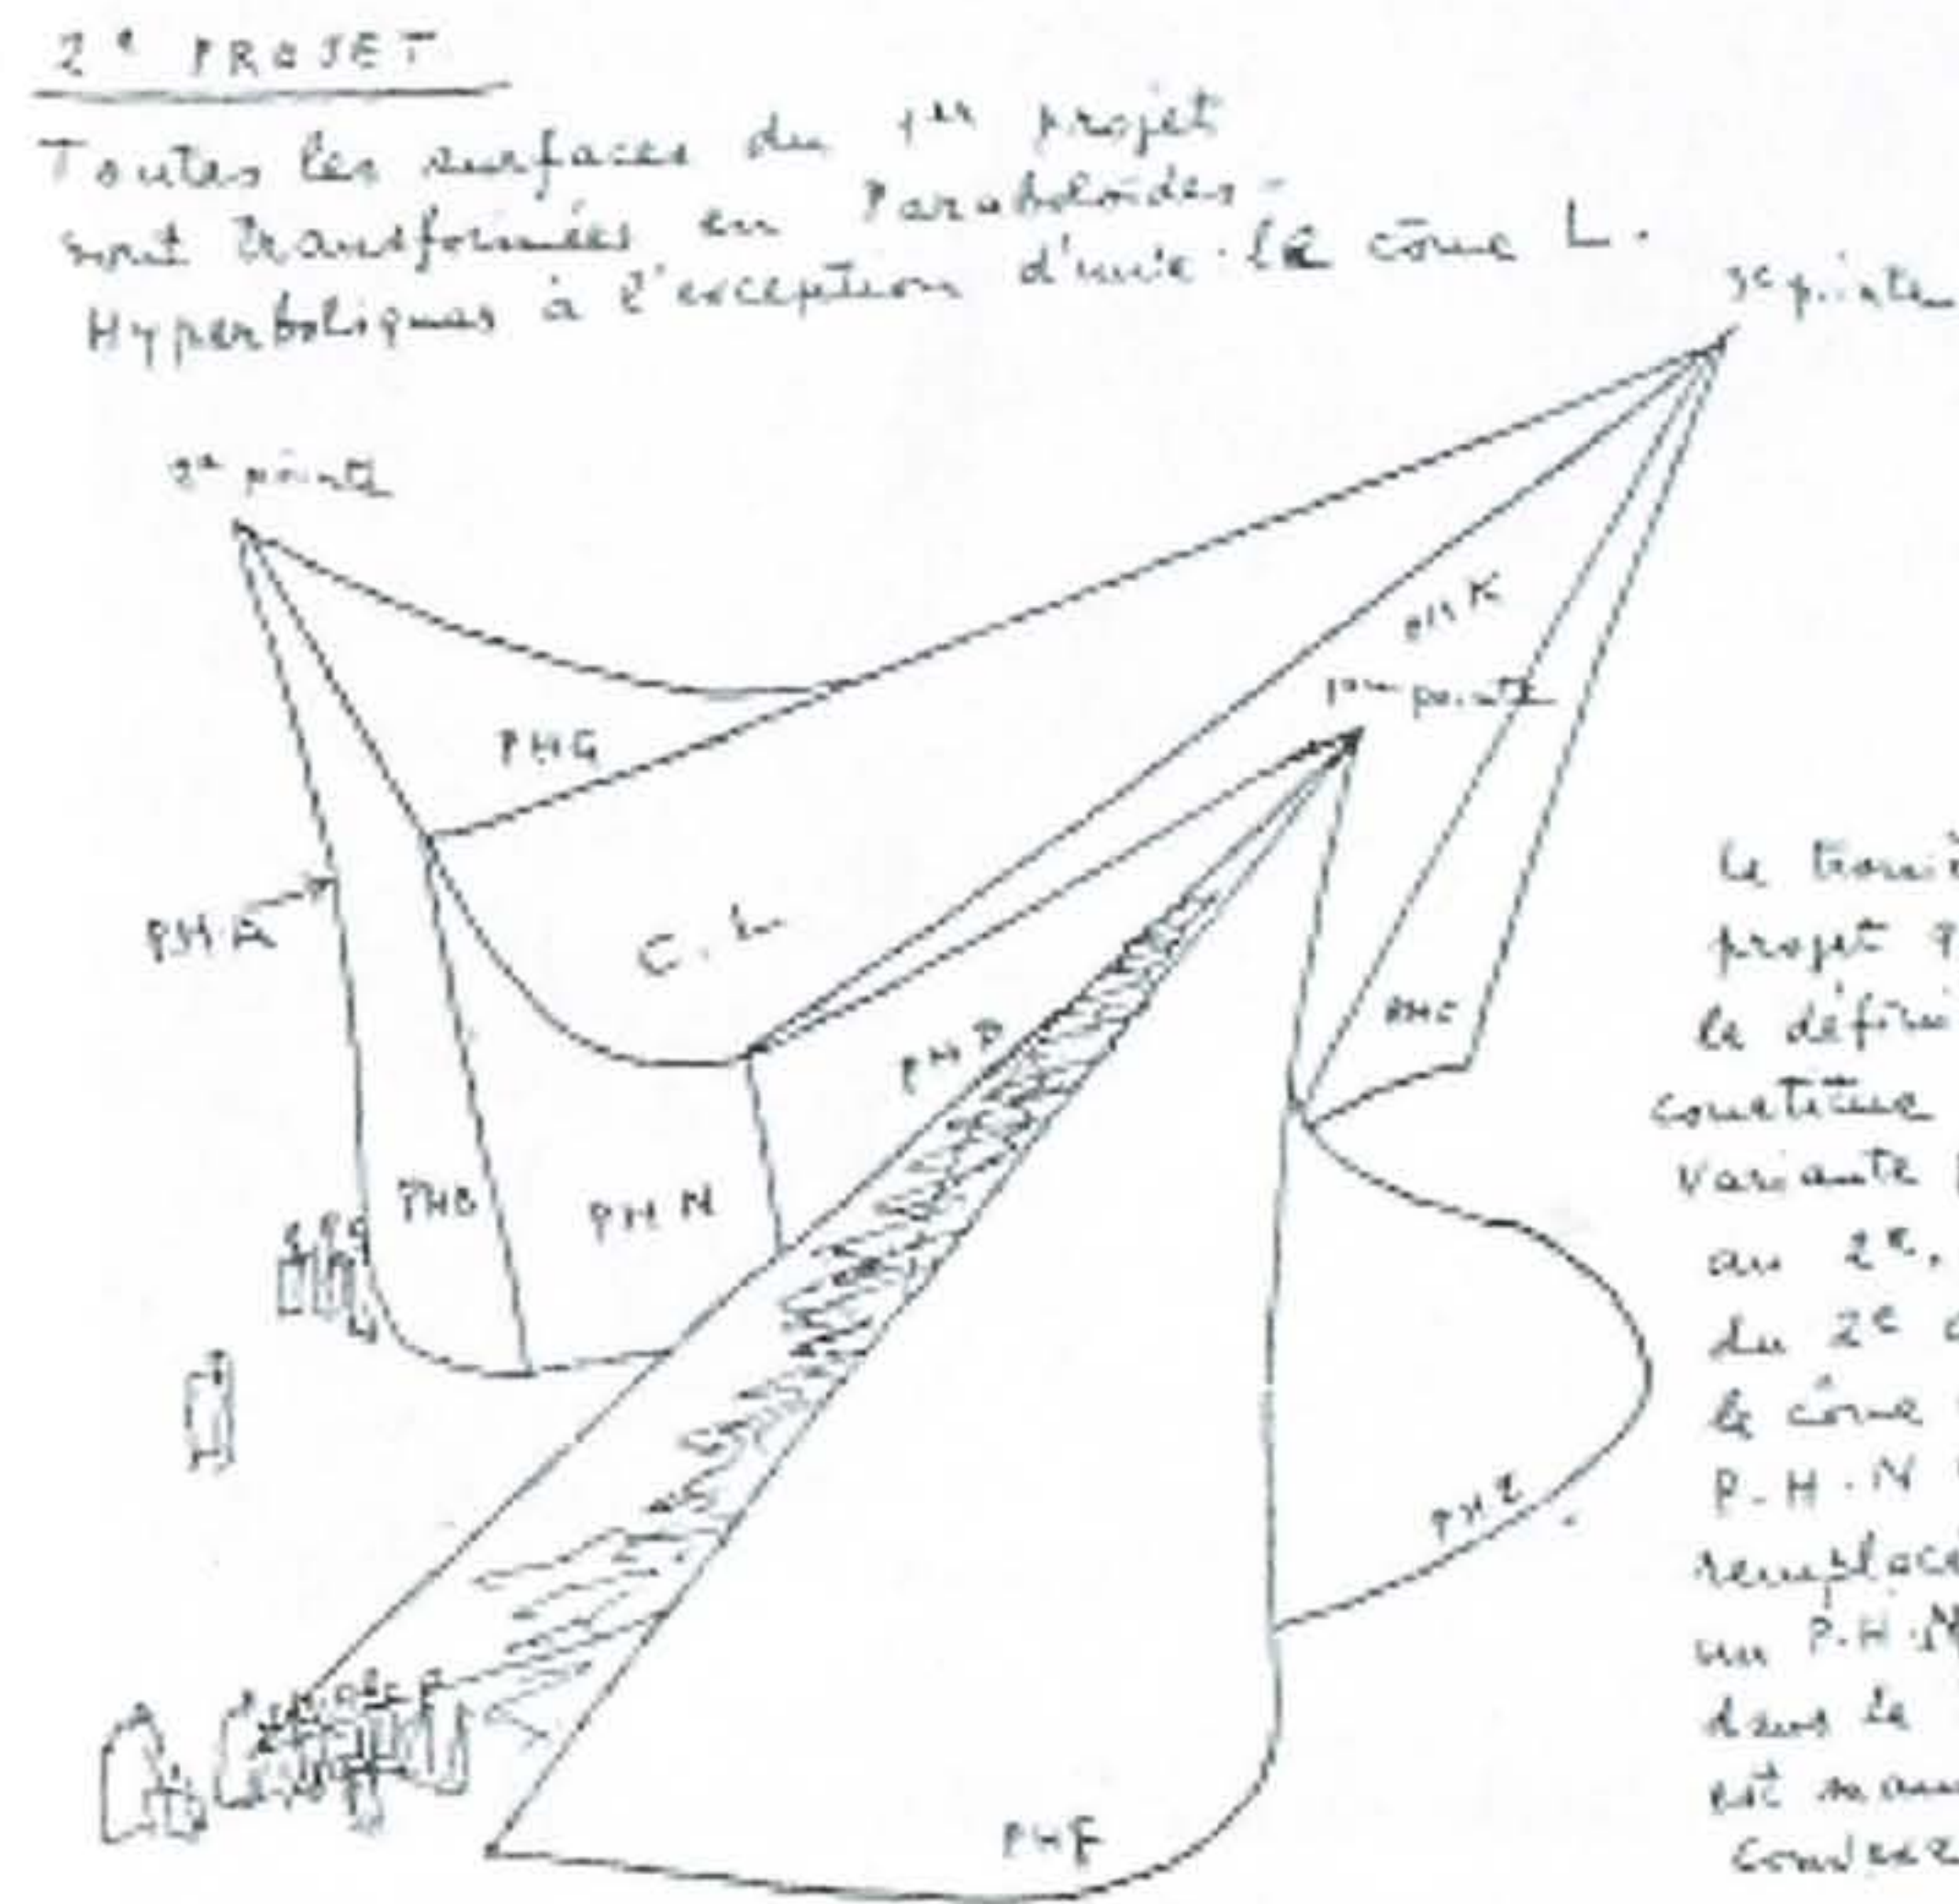 2e PROJET
Toutes les surfaces du 1er projet
sont transformées en Paraboloïdes-
Hyperboliques à l'exception d'une : le cône L.
3e pointe
2e pointe
PHK
1ère pointe
PHG
PHA
C. L
PHD
PHC
PHB
PHN
PHE
PHF
le troisiè
projet q
le défini
constitue
variante p
au 2e.
du 2e c
le cône
P.H.N
remplacé
un P.H.N
dans le
est